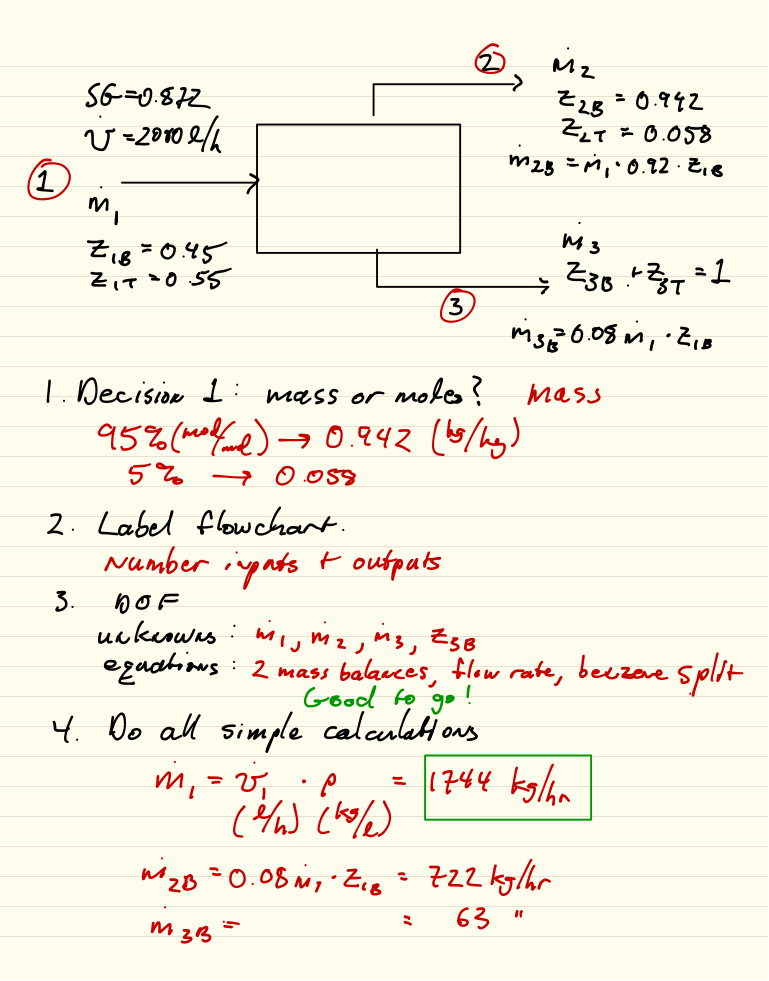 SG=0.872
v̇ =2000 l/h
1
ṁ₁
Z₁B = 0.45
Z₁T = 0.55
2
ṁ₂
Z₂B = 0.942
Z₂T = 0.058
ṁ₂B = ṁ₁ · 0.92 · Z₁B
3
ṁ₃
Z₃B + Z₃T = 1
ṁ₃B = 0.08 ṁ₁ · Z₁B
1. Decision 1: mass or moles? mass
95% (mol/mol) → 0.942 (kg/kg)
5% → 0.058
2. Label flowchart.
Number inputs + outputs
3. DOF
unknowns: ṁ₁, ṁ₂, ṁ₃, Z₃B
equations: 2 mass balances, flow rate, benzene split
Good to go!
4. Do all simple calculations
ṁ₁ = v̇₁ · ρ = 1744 kg/hr
(l/h) (kg/l)
ṁ₂B = 0.08 ṁ₁ · Z₁B = 722 kg/hr
ṁ₃B = = 63 "